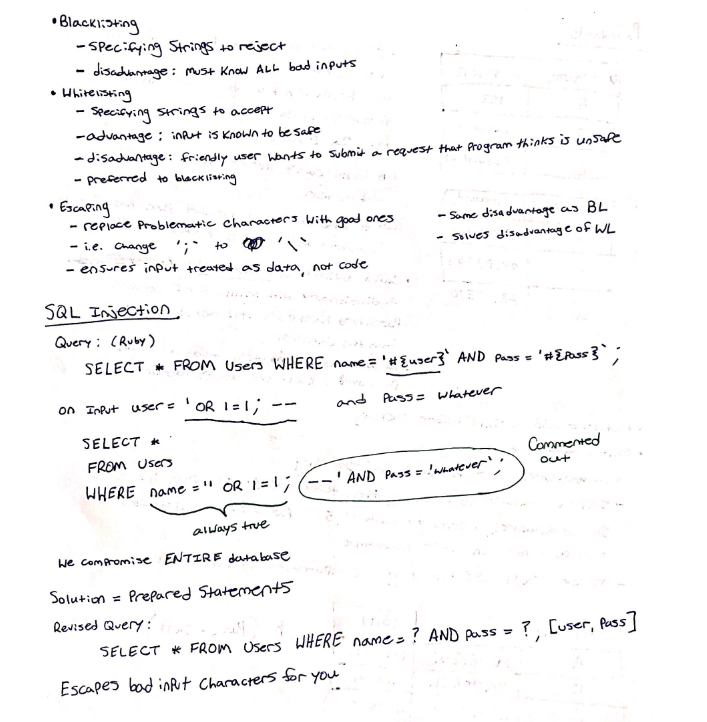 • Blacklisting
- Specifying Strings to reject
- disadvantage: must know ALL bad inputs
• Whitelisting
- Specifying strings to accept
- advantage: input is known to be safe
- disadvantage: friendly user wants to submit a request that program thinks is unsafe
- preferred to blacklisting
• Escaping
- replace problematic characters with good ones
- i.e. change ';' to '\'
- ensures input treated as data, not code
- Same disadvantage as BL
- Solves disadvantage of WL
SQL Injection
Query: (Ruby)
SELECT * FROM Users WHERE name = '#{user}' AND Pass = '#{Pass}';
on Input user = ' OR 1=1; -- and Pass = whatever
SELECT *
FROM Users
WHERE name = '' OR 1=1; --' AND Pass = 'whatever';
Commented out
always true
We compromise ENTIRE database
Solution = Prepared Statements
Revised Query:
SELECT * FROM Users WHERE name = ? AND Pass = ?, [user, Pass]
Escapes bad input characters for you